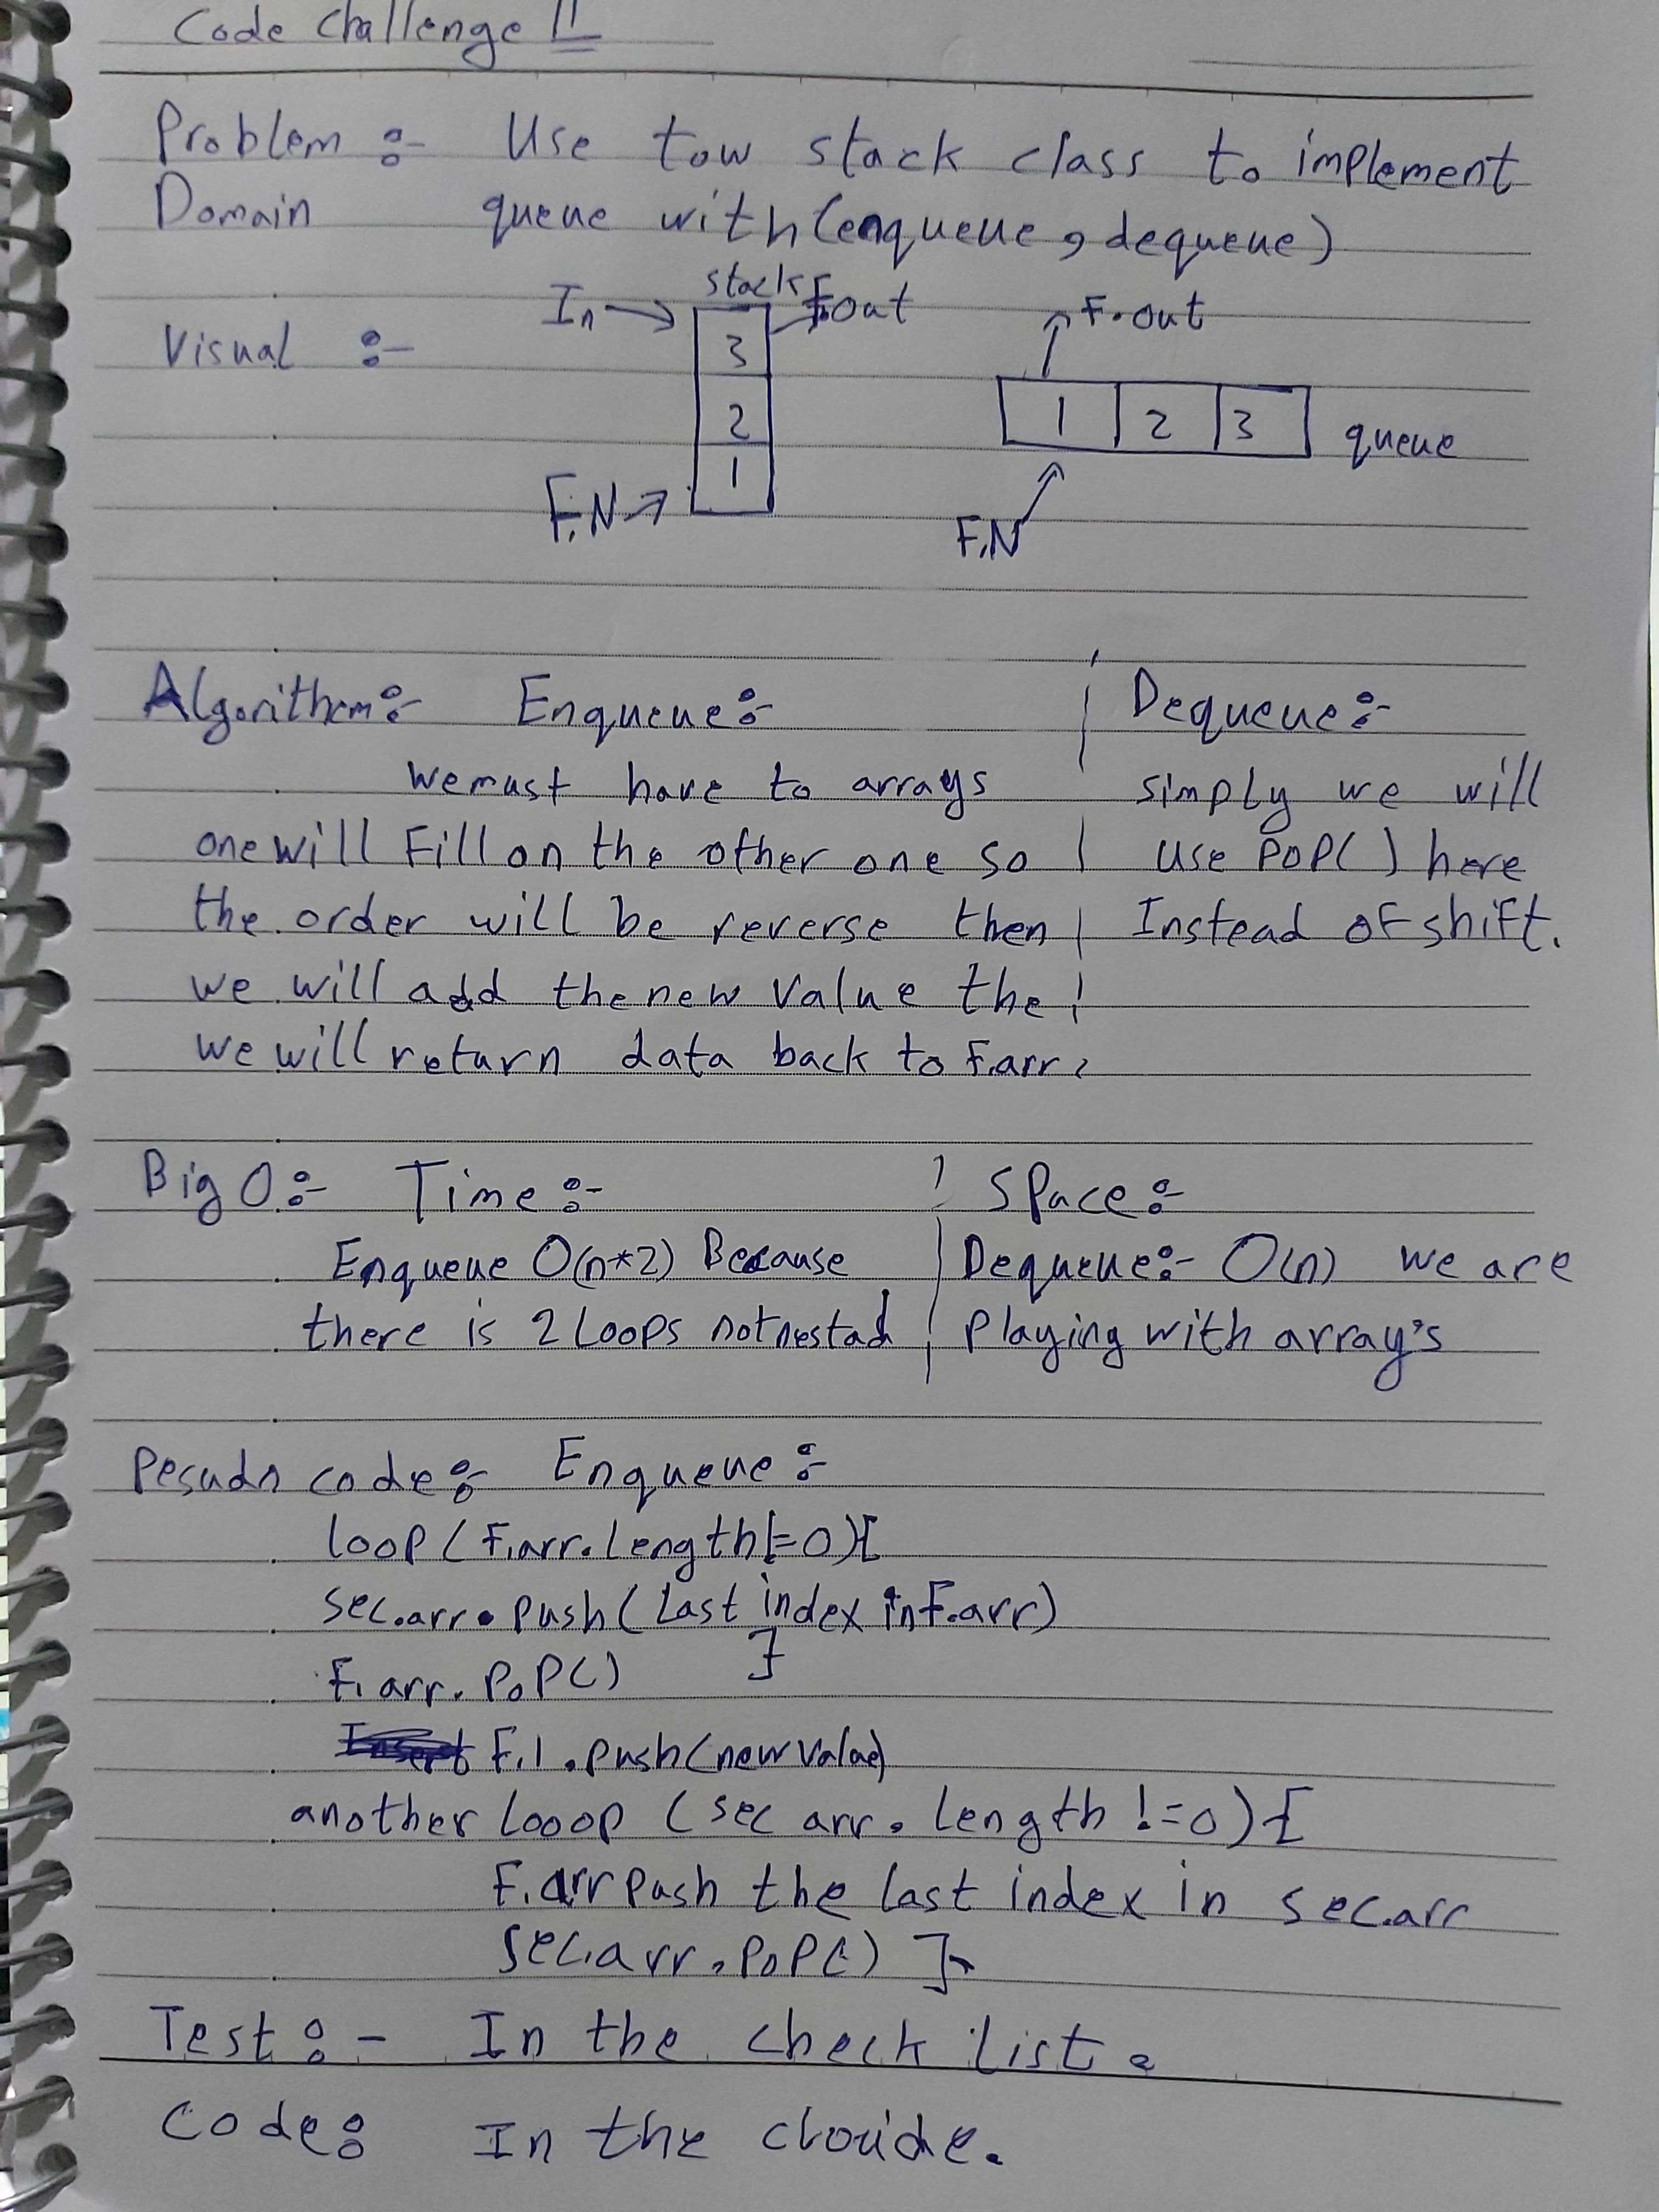 Code Challenge 11
Problem :- Use tow stack class to implement
Domain queue with (enqueue, dequeue)
Visual :-
stack
In F.out
3
2
1
F.N
F.out
1 2 3 queue
F.N
Algorithem:- Enqueue:-
we must have to arrays
one will Fill on the other one so
the order will be reverse then
we will add the new value the
we will return data back to F.arr.
Dequeue:-
simply we will
use pop() here
Instead of shift.
Big O:- Time:-
Enqueue O(n*2) Because
there is 2 Loops not nestad
Space:-
Dequeue:- O(n) we are
playing with array's
Pesudo code:- Enqueue:-
loop (F.arr.length != 0){
sec.arr.push(Last index in F.arr)
F.arr.pop() }
F.1.push(new value)
another Looop (sec arr.length != 0){
F.arr push the last index in sec.arr
sec.arr.pop() }
Test:- In the check list.
Code: In the clouide.